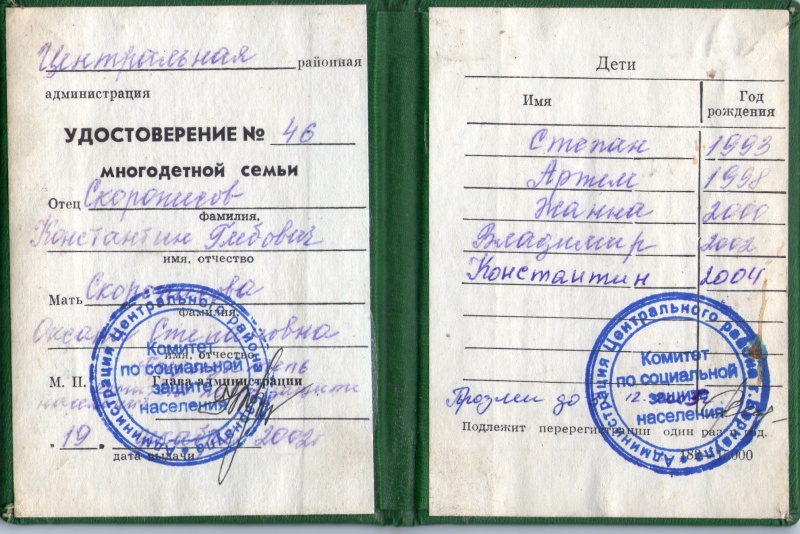 Центральная районная
администрация
УДОСТОВЕРЕНИЕ № 46
многодетной семьи
Отец Скорописов
фамилия,
Константин Глебович
имя, отчество
Мать
фамилия,
Оксана Степановна
имя, отчество
М. П. Глава администрации
Администрация Центрального района г. Барнаула
Комитет
по социальной
защите
населения
„ 19 „ 2002г
дата выдачи
Дети
Имя Год рождения
Степан 1993
Артем 1998
Жанна 2000
Владимир 2002
Константин 2004
Администрация Центрального района г. Барнаула
Комитет
по социальной
защите
населения
Продлен до 12.
Подлежит перерегистрации один раз в год.